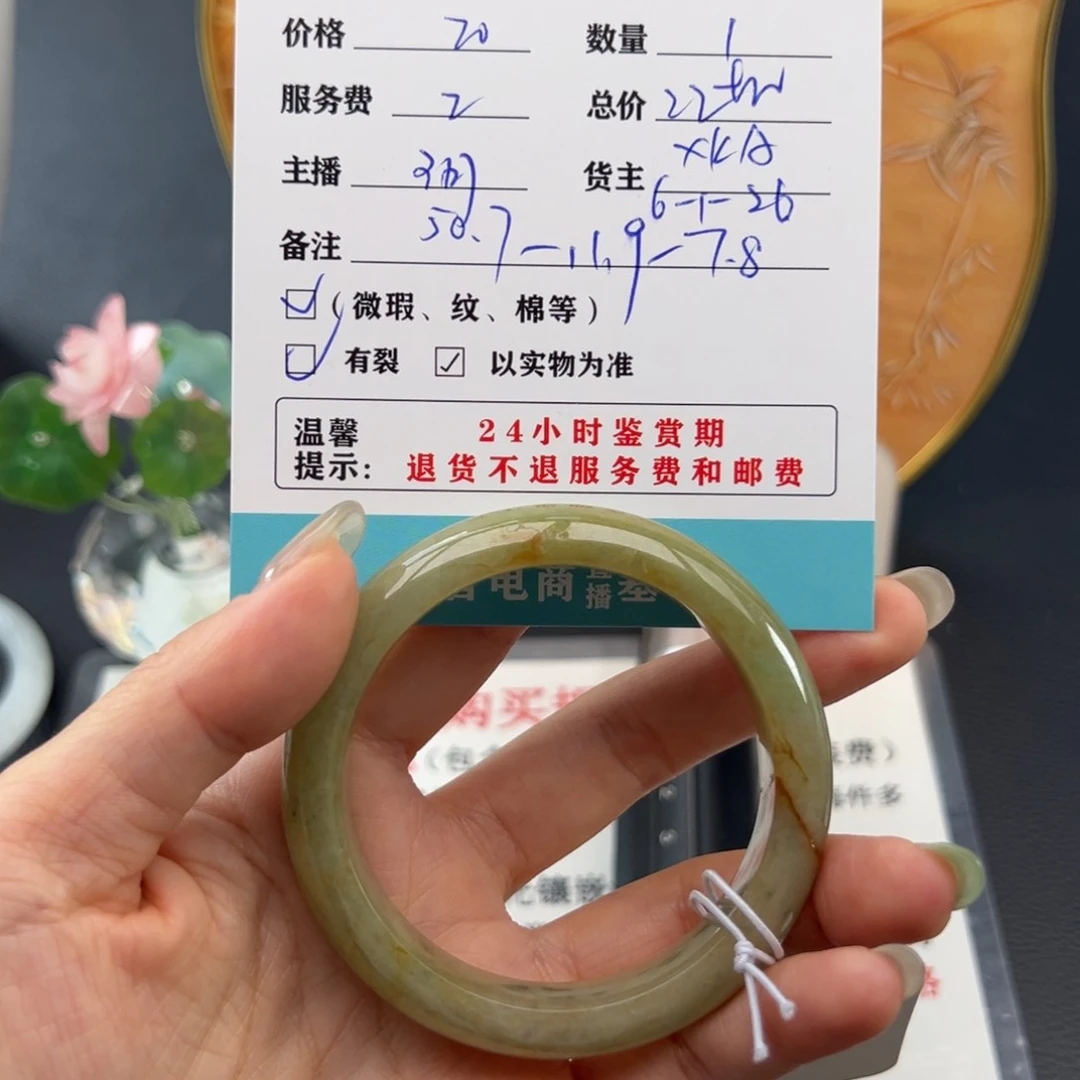 价格 20 数量 1
服务费 2 总价 22
主播 货主 XKA
6-1-26
备注 50.7-11.9-7.8
☑ (微瑕、纹、棉等)
☑ 有裂 ☑ 以实物为准
温馨 24小时鉴赏期
提示: 退货不退服务费和邮费
电商 播
购买
(包
费)
件多
镶嵌